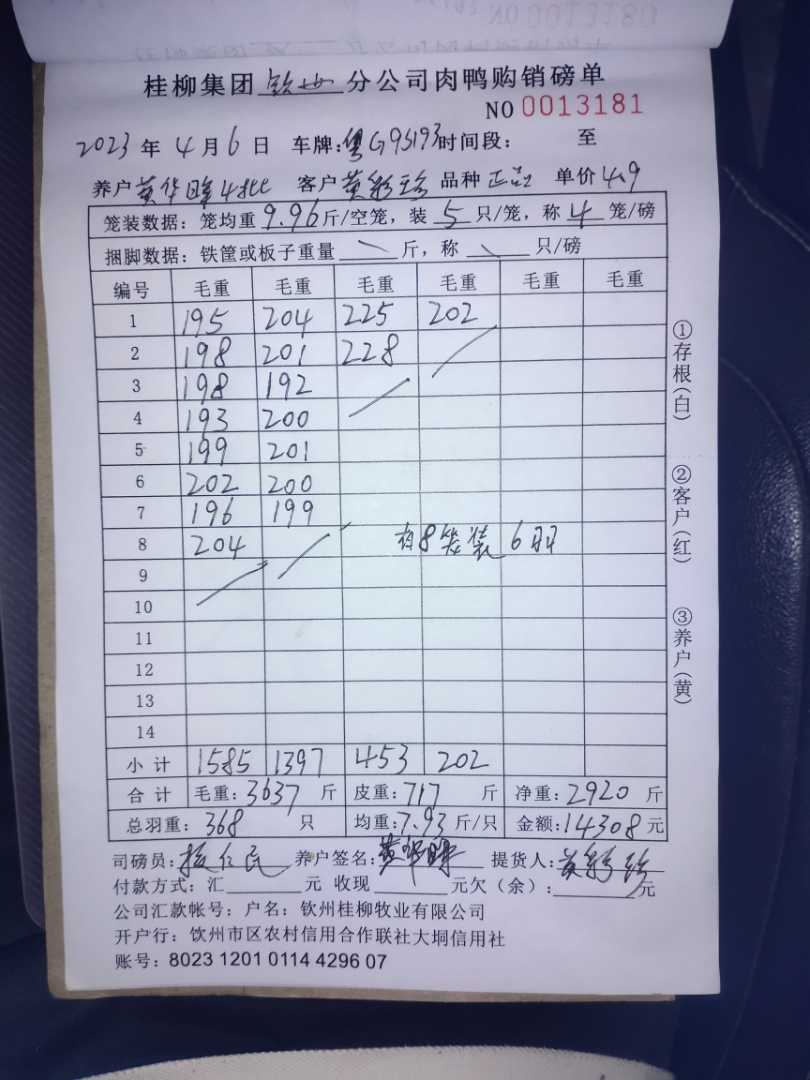 桂柳集团 钦州 分公司肉鸭购销磅单
NO 0013181
2023 年 4 月 6 日 车牌:粤G9S193 时间段: 至
养户 黄华晖4批 客户 黄彩珍 品种 正品 单价 4.9
笼装数据: 笼均重 9.96 斤/空笼, 装 5 只/笼, 称 4 笼/磅
捆脚数据: 铁筐或板子重量 斤, 称 只/磅
编号 毛重 毛重 毛重 毛重 毛重 毛重
1 195 204 225 202
2 198 201 228
3 198 192
4 193 200
5 199 201
6 202 200
7 196 199
8 204 有8笼装6羽
9
10
11
12
13
14
小计 1585 1397 453 202
合计 毛重: 3637 斤 皮重: 717 斤 净重: 2920 斤
总羽重: 368 只 均重: 7.93 斤/只 金额: 14308 元
司磅员: 养户签名: 黄华晖 提货人: 黄彩珍
付款方式: 汇 元 收现 元欠(余): 元
公司汇款帐号: 户名: 钦州桂柳牧业有限公司
开户行: 饮州市区农村信用合作联社大垌信用社
账号: 8023 1201 0114 4296 07
①存根(白)
②客户(红)
③养户(黄)